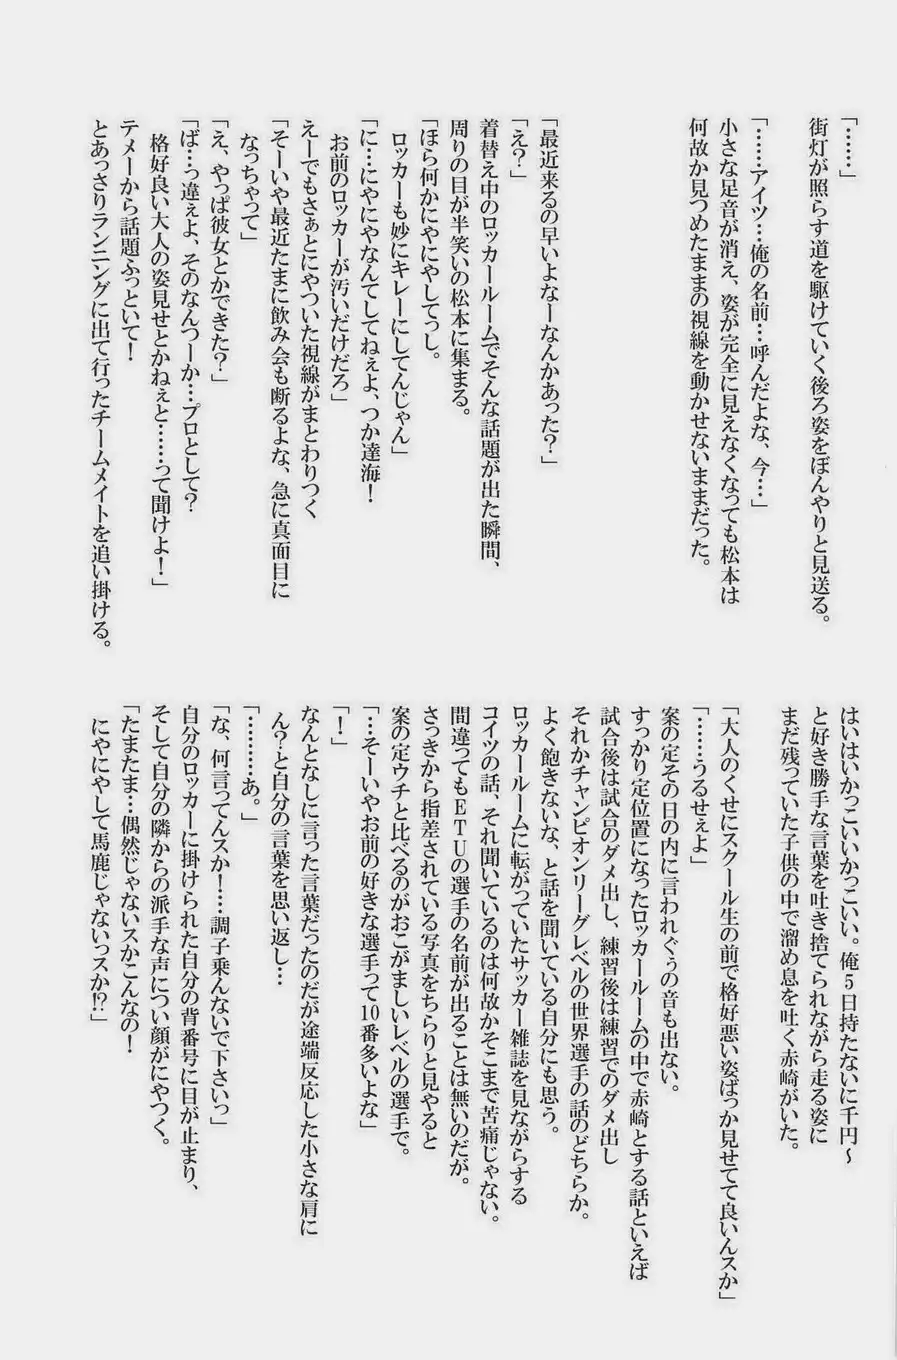 「……」
街灯が照らす道を駆けていく後ろ姿をぼんやりと見送る。
「……アイツ…俺の名前…呼んだよな、今…」
小さな足音が消え、姿が完全に見えなくなっても松本は
何故か見つめたままの視線を動かせないままだった。
「最近来るの早いよなーなんかあった？」
「え？」
着替え中のロッカールームでそんな話題が出た瞬間、
周りの目が半笑いの松本に集まる。
「ほら何かにやにやしてっし。
ロッカーも妙にキレーにしてんじゃん」
「に…にやにやなんてしてねぇよ、つか達海！
お前のロッカーが汚いだけだろ」
えーでもさぁとにやついた視線がまとわりつく
「そーいや最近たまに飲み会も断るよな、急に真面目に
なっちゃって」
「え、やっぱ彼女とかできた？」
「ば…っ違ぇよ、そのなんつーか…プロとして？
格好良い大人の姿見せとかねぇと……って聞けよ！」
テメーから話題ふっといて！
とあっさりランニングに出て行ったチームメイトを追い掛ける。
はいはいかっこいいかっこいい。俺5日持たないに千円～
と好き勝手な言葉を吐き捨てられながら走る姿に
まだ残っていた子供の中で溜め息を吐く赤崎がいた。
「大人のくせにスクール生の前で格好悪い姿ばっか見せてて良いんスか」
「……うるせぇよ」
案の定その日の内に言われぐぅの音も出ない。
すっかり定位置になったロッカールームの中で赤崎とする話といえば
試合後は試合のダメ出し、練習後は練習でのダメ出し
それかチャンピオンリーグレベルの世界選手の話のどちらか。
よく飽きないな、と話を聞いている自分にも思う。
ロッカールームに転がっていたサッカー雑誌を見ながらする
コイツの話、それ聞いているのは何故かそこまで苦痛じゃない。
間違ってもＥＴＵの選手の名前が出ることは無いのだが。
さっきから指差されている写真をちらりと見やると
案の定ウチと比べるのがおこがましいレベルの選手で。
「…そーいやお前の好きな選手って10番多いよな」
「！」
なんとなしに言った言葉だったのだが途端反応した小さな肩に
ん？と自分の言葉を思い返し…
「………あ。」
「な、何言ってんスか！…調子乗んないで下さいっ」
自分のロッカーに掛けられた自分の背番号に目が止まり、
そして自分の隣からの派手な声につい顔がにやつく。
「たまたま…偶然じゃないスかこんなの！
にやにやして馬鹿じゃないっスか!?」